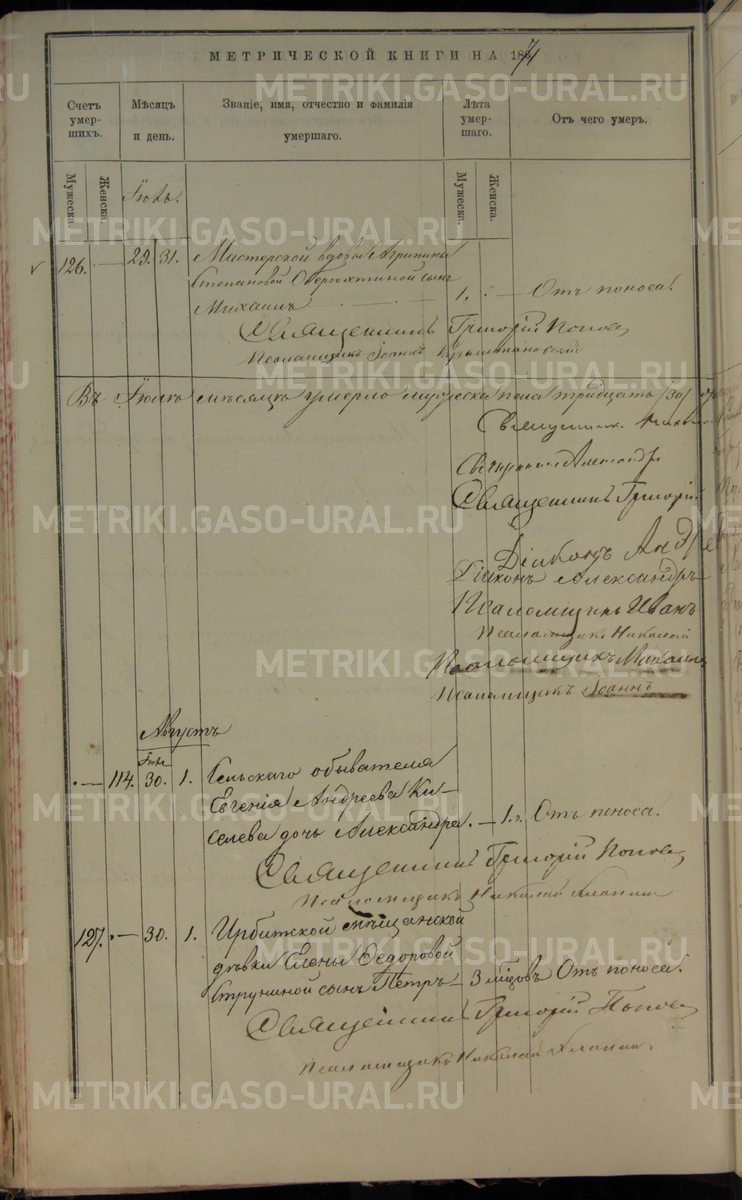 МЕТРИЧЕСКОЙ КНИГИ НА 1871
Счетъ умер- шихъ.
Мѣсяцъ и день.
Званіе, имя, отчество и фамилія умершаго.
Лѣта умер- шаго.
Отъ чего умеръ.
Мужеска.
Женска.
Мужеска.
Женска.
Іюль.
126. 29. 31. Мастерской вдовы Агрипины
Степановой сынъ
Михаилъ 1. Отъ поноса.
Священникъ Григорій Поповъ
Псаломщикъ Іоаннъ
Въ Іюлѣ мѣсяцѣ умерло мужеска пола тридцать /30/
Священникъ
Священникъ Александръ
Священникъ Григорій
Діаконъ Андре
Діаконъ Александръ
Псаломщикъ Иванъ
Псаломщикъ Николай
Псаломщикъ Михаилъ
Псаломщикъ Іоаннъ
Августъ
Іюль
114. 30. 1. Сельскаго обывателя
Евгенія Андреева Ки-
селева дочь Александра. 1 г. Отъ поноса.
Священникъ Григорій Поповъ
Псаломщикъ Николай
127. 30. 1. Ирбитской мѣщанской
дѣвки Елены Ѳедоровой
Струниной сынъ Петръ 3 мѣсяцовъ Отъ поноса.
Священникъ Григорій Поповъ
Псаломщикъ Николай
METRIKI.GASO-URAL.RU